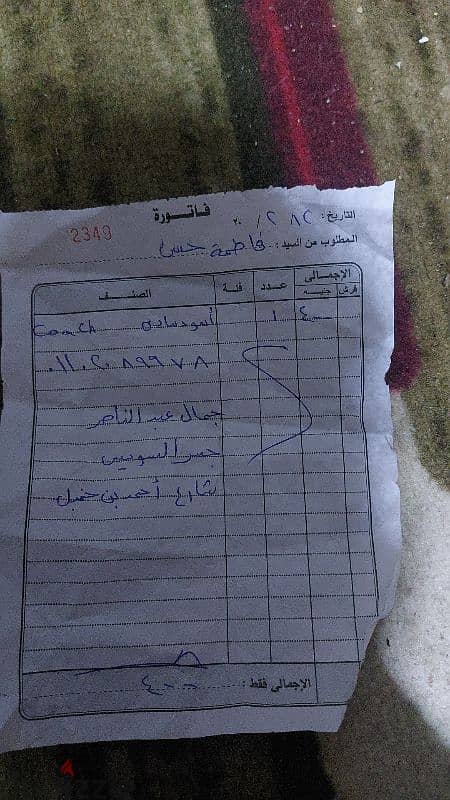 فاتورة
التاريخ : ٢ / ٢٨ / ٢٠
2349
المطلوب من السيد : فاطمة حسن
الإجمالى
قرش جنيه عدد فئة الصنف
٤٠٠ ١ أسود ساده Coach
٠١١٠٢٠٨٩٩٧٨
جمال عبد الناصر
جسر السويس
شارع أحمد بن حنبل
الإجمالى فقط : ٤٠٠